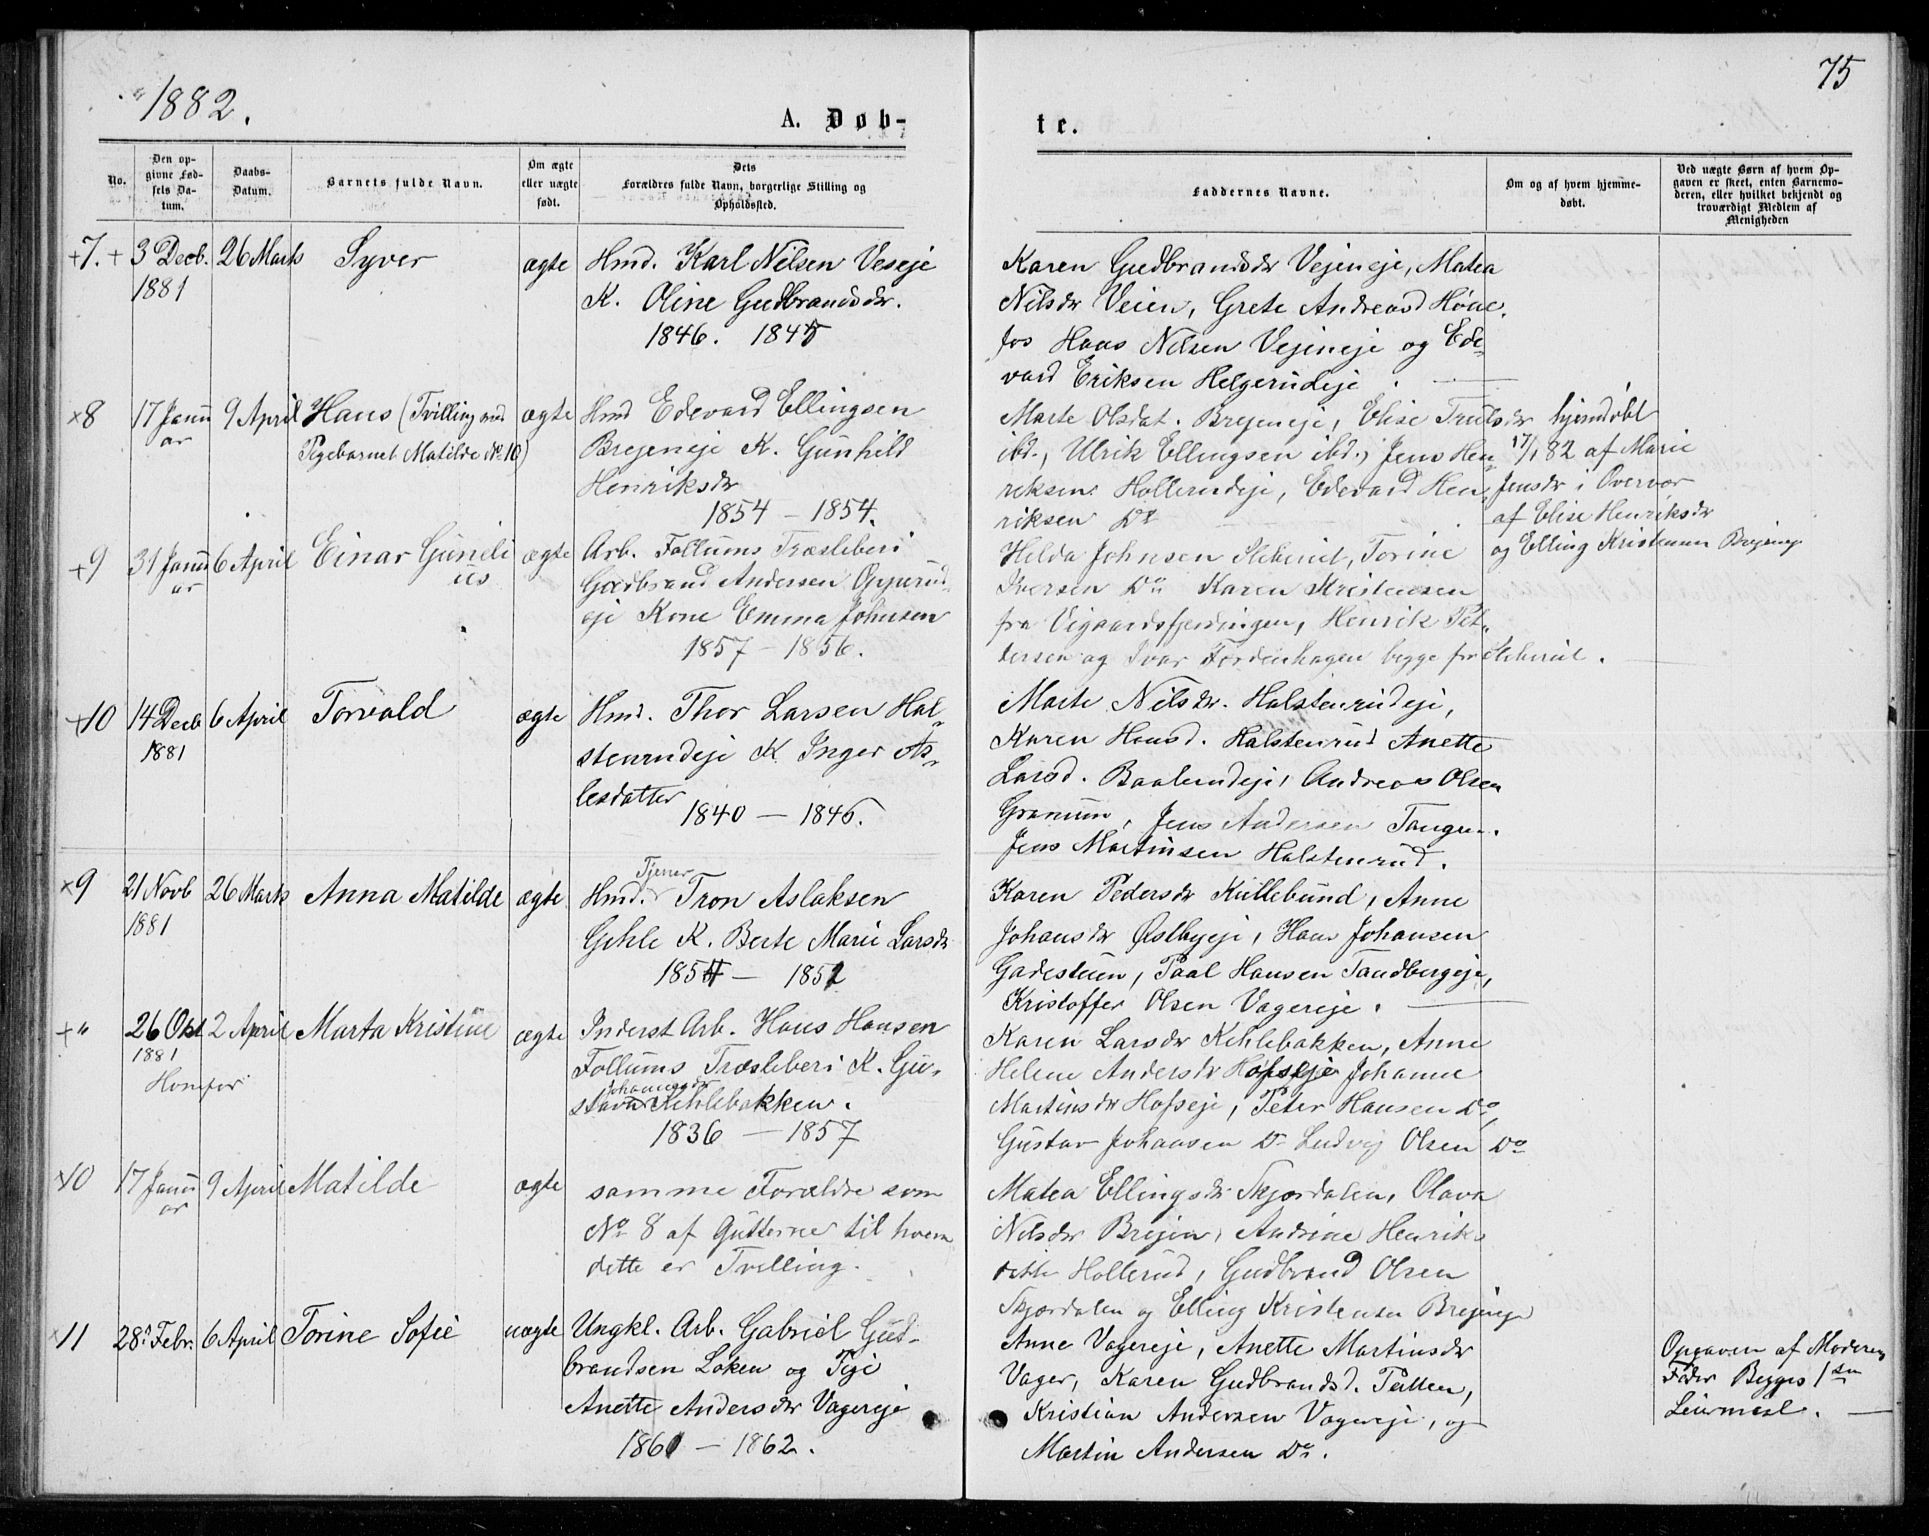 1882.
75
A. Døb-
te.
No.
Den op-
givne Fød-
sels Da-
tum.
Daabs-
Datum.
Barnets fulde Navn.
Om ægte
eller uægte
født.
Dets
Forældres fulde Navn, borgerlige Stilling og
Opholdssted.
Faddernes Navne.
Om og af hvem hjemme-
døbt.
Ved uægte Børn af hvem Op-
gaven er skeet, enten Barnemo-
deren, eller hvilket bekjendt og
troværdigt Medlem af
Menigheden
+7. + 3 Decb. 26 Marts Syver ægte Hmd. Karl Nilsen Veseje
1881
K. Oline Gudbrandsdr.
1846. 1845
Karen Gudbrandsdr Vejeneje, Matea
Nilsdr Veien, Grete Andreasd Høne,
fos Hans Nilsen Vejeneje og Ede,
vard Eriksen Helgerudeje.
×8 17 Janu 9 April Hans (Tvilling med ægte Hmd Edevard Ellingsen
ar
Pigebarnet Matilde No 10)
Brejeneje K. Gunhild
Henriksdr
1854 – 1854.
Marte Olsdat. Brejeneje, Elise Trulsdr
ibd., Ulrik Ellingsen ibd., Jens Hen
riksen Hollerudeje, Edevard Hen
riksen Do
hjemdøbt
17/1 82 af Marie
Jensdr i Overvær
af Elise Henriksdr
og Elling Kristensen Brejeneje
+9 31 Janu 6 April Einar Guneli ægte Arb. Follums Træsleberi
ar
us
Gudbrand Andersen Opperud,
eje Kone Emma Johnsen
1857 – 1856.
Helda Johnsen, Torine
Iversen Do Karen Kristensen
fra Vigaardsfjerdingen, Henrik Pet,
tersen og Ivar begge fra.
+10 14 Decb 6 April Torvald ægte Hmd. Thor Larsen Hal,
1881
stenrudeje K. Inger As,
lesdatter
1840 – 1846.
Marte Nilsdr. Halstenrudeje,
Karen Hansd. Halstenrud Anette
Larsd. Baalerudeje, Andreas Olsen
Granum, Jens Andersen Tangen.
Jens Martinsen Halstenrud.
×9 21 Novb 26 Marts Anna Matilde ægte Hmd. Tjener Tron Aslaksen
1881
Gehle K. Berte Marie Larsdr
1854 – 1851
Karen Pedersdr Kullebund, Anne
Johansdr Østbyeje, Hans Johansen
Gadesteen, Paal Hansen Tandbergeje,
Kristoffer Olsen Vagereje.
+ " 26 Okt 2 April Marta Kristine ægte Inderst Arb. Hans Hansen
1881
Follums Træsleberi K. Gu,
Johannesdr
stava Kehlebakken.
1836 – 1857
Karen Larsdr Kehlebakken, Anne
Helene Andersdr Hofseje Johanne
Martinsdr Hofseje, Peter Hansen Do,
Gustav Johansen Do Ludvig Olsen Do
×10 17 Janu 9 April Matilde ægte samme Forældre som
ar
No 8 af Gutterne til hvem
dette er Tvilling.
Matea Ellingsdr Skjørdalen, Olava
Nilsdr Brejen, Andrine Henriks
datter Hollerud, Gudbrand Olsen
Skjørdalen og Elling Kristensen Brejeneje
×11 28 Febr. 6 April Torine Sofie uægte Ungkl. Arb. Gabriel Gud-
brandsen Løken og Pige
Anette Andersdr Vagereje
1861 – 1862.
Anne Vagereje, Anette Martinsdr
Vager, Karen Gudbrandsd. Pallen,
Kristian Andersen Vagereje, og
Martin Andersen Do.
Opgaven af Moderens
Fader Begges 1ste
Leiermaal.